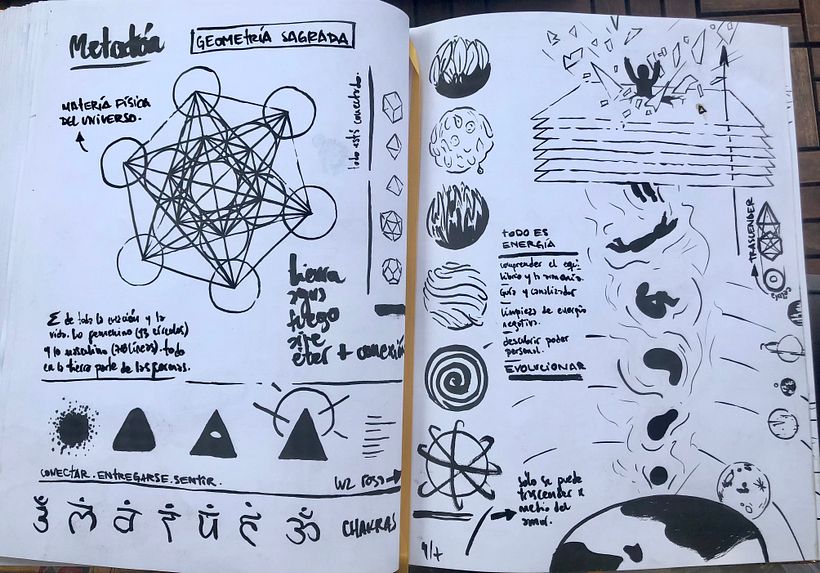 Metatrón
GEOMETRÍA SAGRADA
MATERÍA FÍSICA
DEL UNIVERSO.
todo está conectado.
tierra
agua
fuego
aire
éter + conexión
E de toda la creación y la
vida. Lo femenino (13 círculos)
y lo masculino (78 líneas). todo
en la tierra parte de las formas.
CONECTAR. ENTREGARSE. SENTIR.
luz rosa
ॐ CHAKRAS
TODO ES
ENERGÍA
comprender el equi-
librio y la armonía.
Guía y canalizador
limpieza de energía
negativa.
descubrir poder
personal.
EVOLUCIONAR
TRASCENDER
sólo se puede
trascender x
medio del
amor.